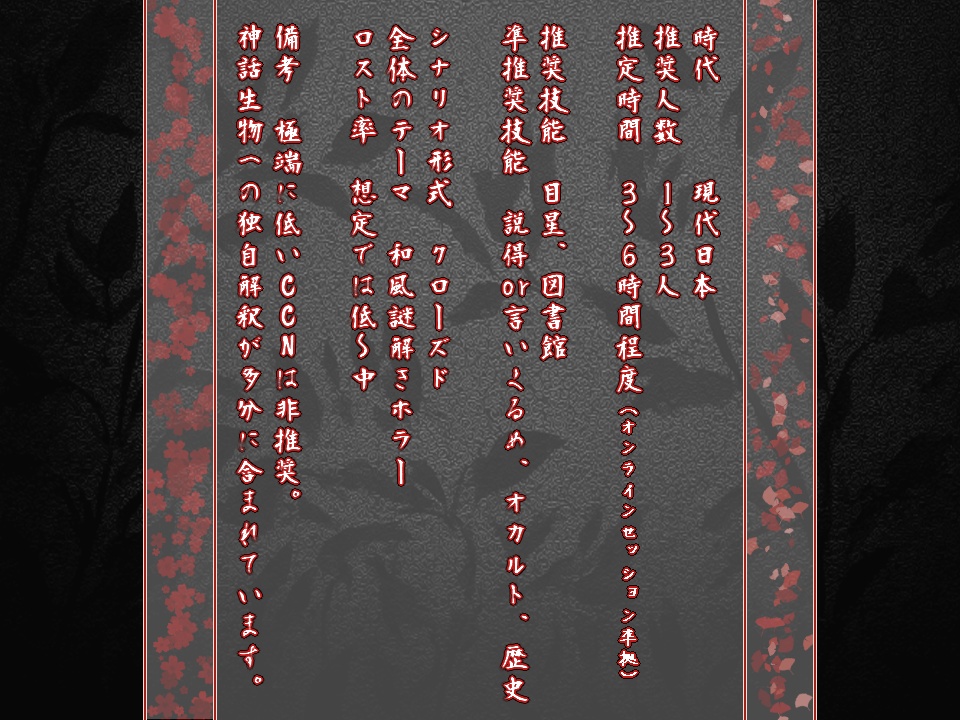 時代　　　現代日本
推奨人数　1〜3人
推定時間　3〜6時間程度（オンラインセッション準拠）
推奨技能　目星、図書館
準推奨技能　説得or言いくるめ、オカルト、歴史
シナリオ形式　クローズド
全体のテーマ　和風謎解きホラー
ロスト率　想定では低〜中
備考　極端に低いCCNは非推奨。
神話生物への独自解釈が多分に含まれています。